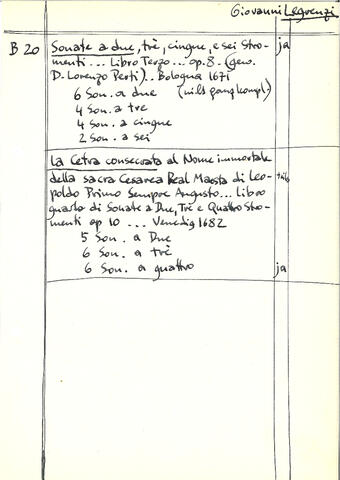 Giovanni Legrenzi
B 20 Sonate a due, trè, cinque, e sei Stro- ja
menti ... Libro Terzo ... op. 8. (gew.
D. Lorenzo Perti).. Bologna 1671
6 Son. a due (nicht ganz kompl.)
4 Son. a tre
4 Son. a cinque
2 Son. a sei
La Cetra consecrata al Nome immortale
della sacra Cesarea Real Maesta di Leo-
poldo Primo Sempre Augusto ... Libro
quarto di Sonate a Due, Tre e Quattro Stro-
menti op 10 ... Venedig 1682
5 Son. a Due
6 Son. a trè
6 Son. a quattro ja